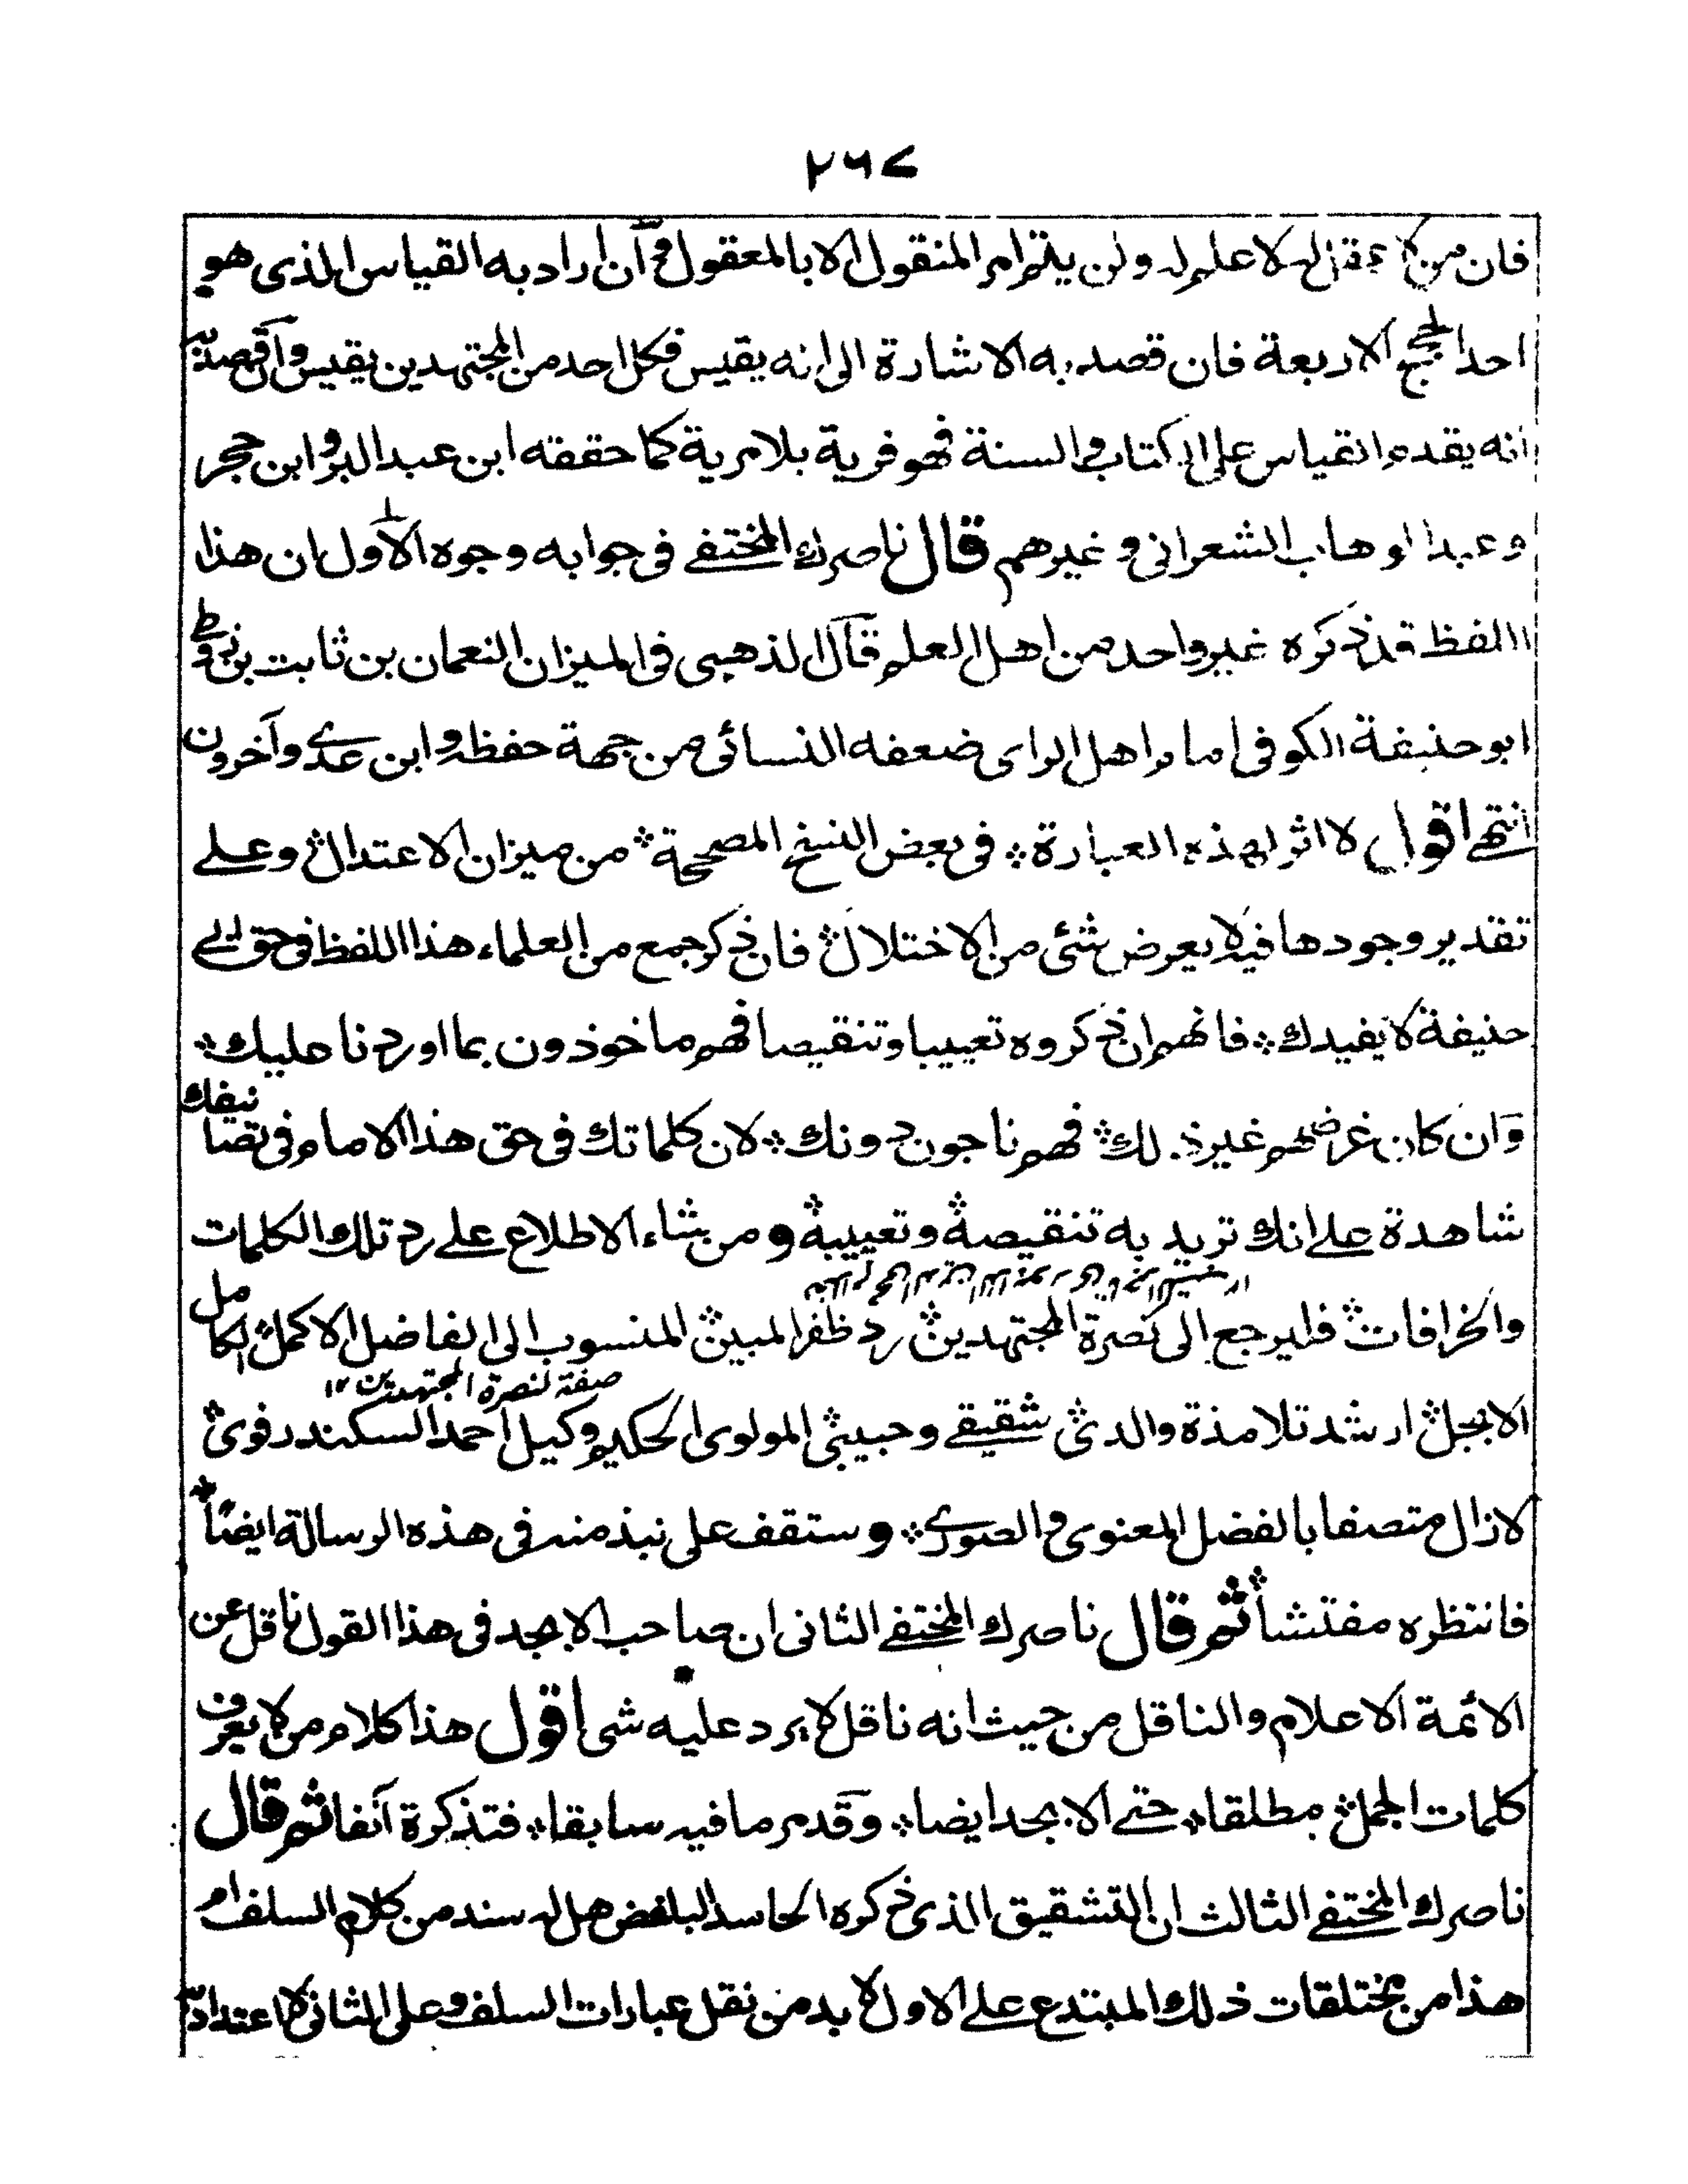 ۲۶۷
فان من لا عقل له لا علم له ولن يلتم امر المنقول الا بالمعقول وآن اراد به القياس الذى هو
احد الحجج الاربعة فان قصد به الاشارة الى انه يقيس فكل احد من المجتهدين يقيس وآن قصد
انه يقدم القياس على الكتاب والسنة فهو فرية بلا مرية كما حققه ابن عبد البر وابن حجر
وعبد الوهاب الشعرانى وغيرهم قال ناصرك المختفے فى جوابه وجوه الاول ان هذا
اللفظ قد ذكره غير واحد من اهل العلم قآل الذهبى فى الميزان النعمان بن ثابت بن زوطے
ابو حنيفة الكوفى امام اهل الراى ضعفه النسائى من جهة حفظه وابن عدے وآخرون
انتهے اقول لا اثر لهذه العبارة ؞ فى بعض النسخ المصححة ؞ من ميزان الاعتدال ؞ وعلے
تقدير وجودها فيه لا يعرض شئى من الاختلال ؞ فان ذكر جمع من العلماء هذا اللفظ فى حق ابے
حنيفة لا يفيدك ؞ فانهم ان ذكروه تعييبا وتنقيصا فهم ماخوذون بما اوردنا عليك ؞
وآن كان غرضهم غير ذلك ؞ فهم ناجون دونك ؞ لان كلماتك فى حق هذا الامام فى تصانيفك
شاهدة علے انك تريد به تنقيصه ؞ وتعييبه ؞ ومن شاء الاطلاع علے رد تلك الكلمات
والخرافات ؞ فليرجع الى نصرة المجتهدين ؞ رد ظفر المبين ؞ المنسوب الى الفاضل الاكمل ؞ الكامل
صفة لنصرة المجتهدين ۱۲
الابجل ؞ ارشد تلامذة والدى ؞ شقيقے وحبيبى ؞ المولوى الحكيم وكيل احمد السكندرفورى ؞
لازال متصفا بالفضل المعنوى والصورے ؞ وستقف على نبذ منه فى هذه الرسالة ايضا ؞
فانتظره مفتشا ؞ ثم قال ناصرك المختفے الثانى ان صاحب الابجد فى هذا القول ناقل عن
الائمة الاعلام والناقل من حيث انه ناقل لا يرد عليه شى اقول هذا كلام من لا يعرف
كلمات الجمل ؞ مطلقا ؞ حتے الابجد ايضا ؞ وقد مر ما فيه سابقا ؞ فتذكرة آنفا ثم قال
ناصرك المختفے الثالث ان التشقيق الذى ذكره الحاسد الباغض هل له سند من كلام السلف ام
هذا من مختلقات ذلك المبتدع علے الاول لا بد من نقل عبارات السلف وعلى الثانى لا اعتداد